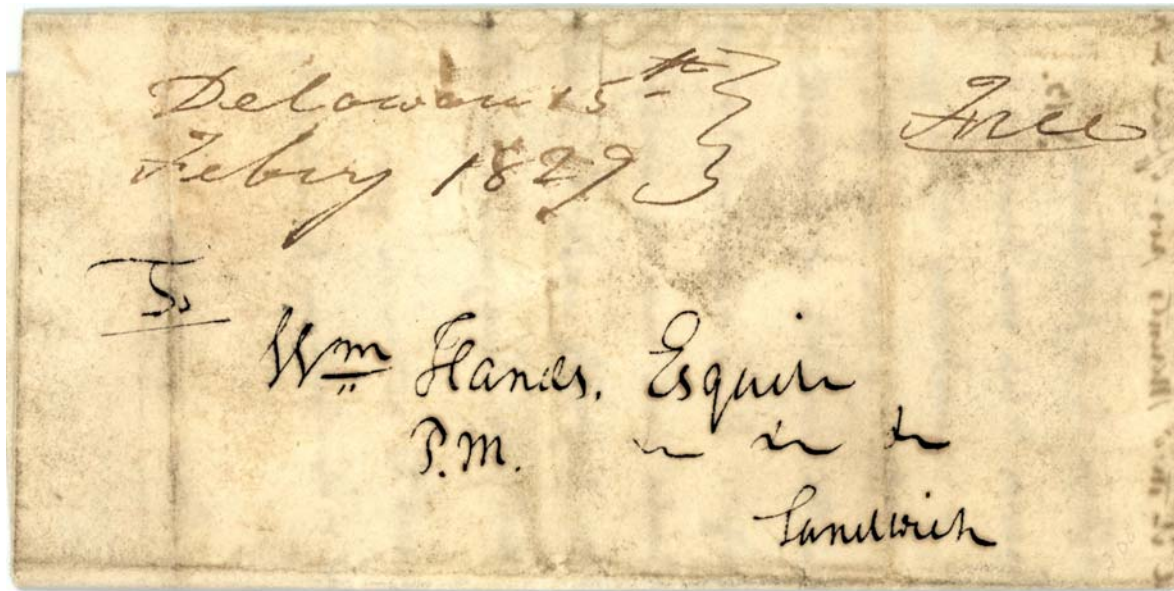 Delaware 15th
Febury 1829
Free
To
Wm Hands, Esquire
P.M.
Sandwich